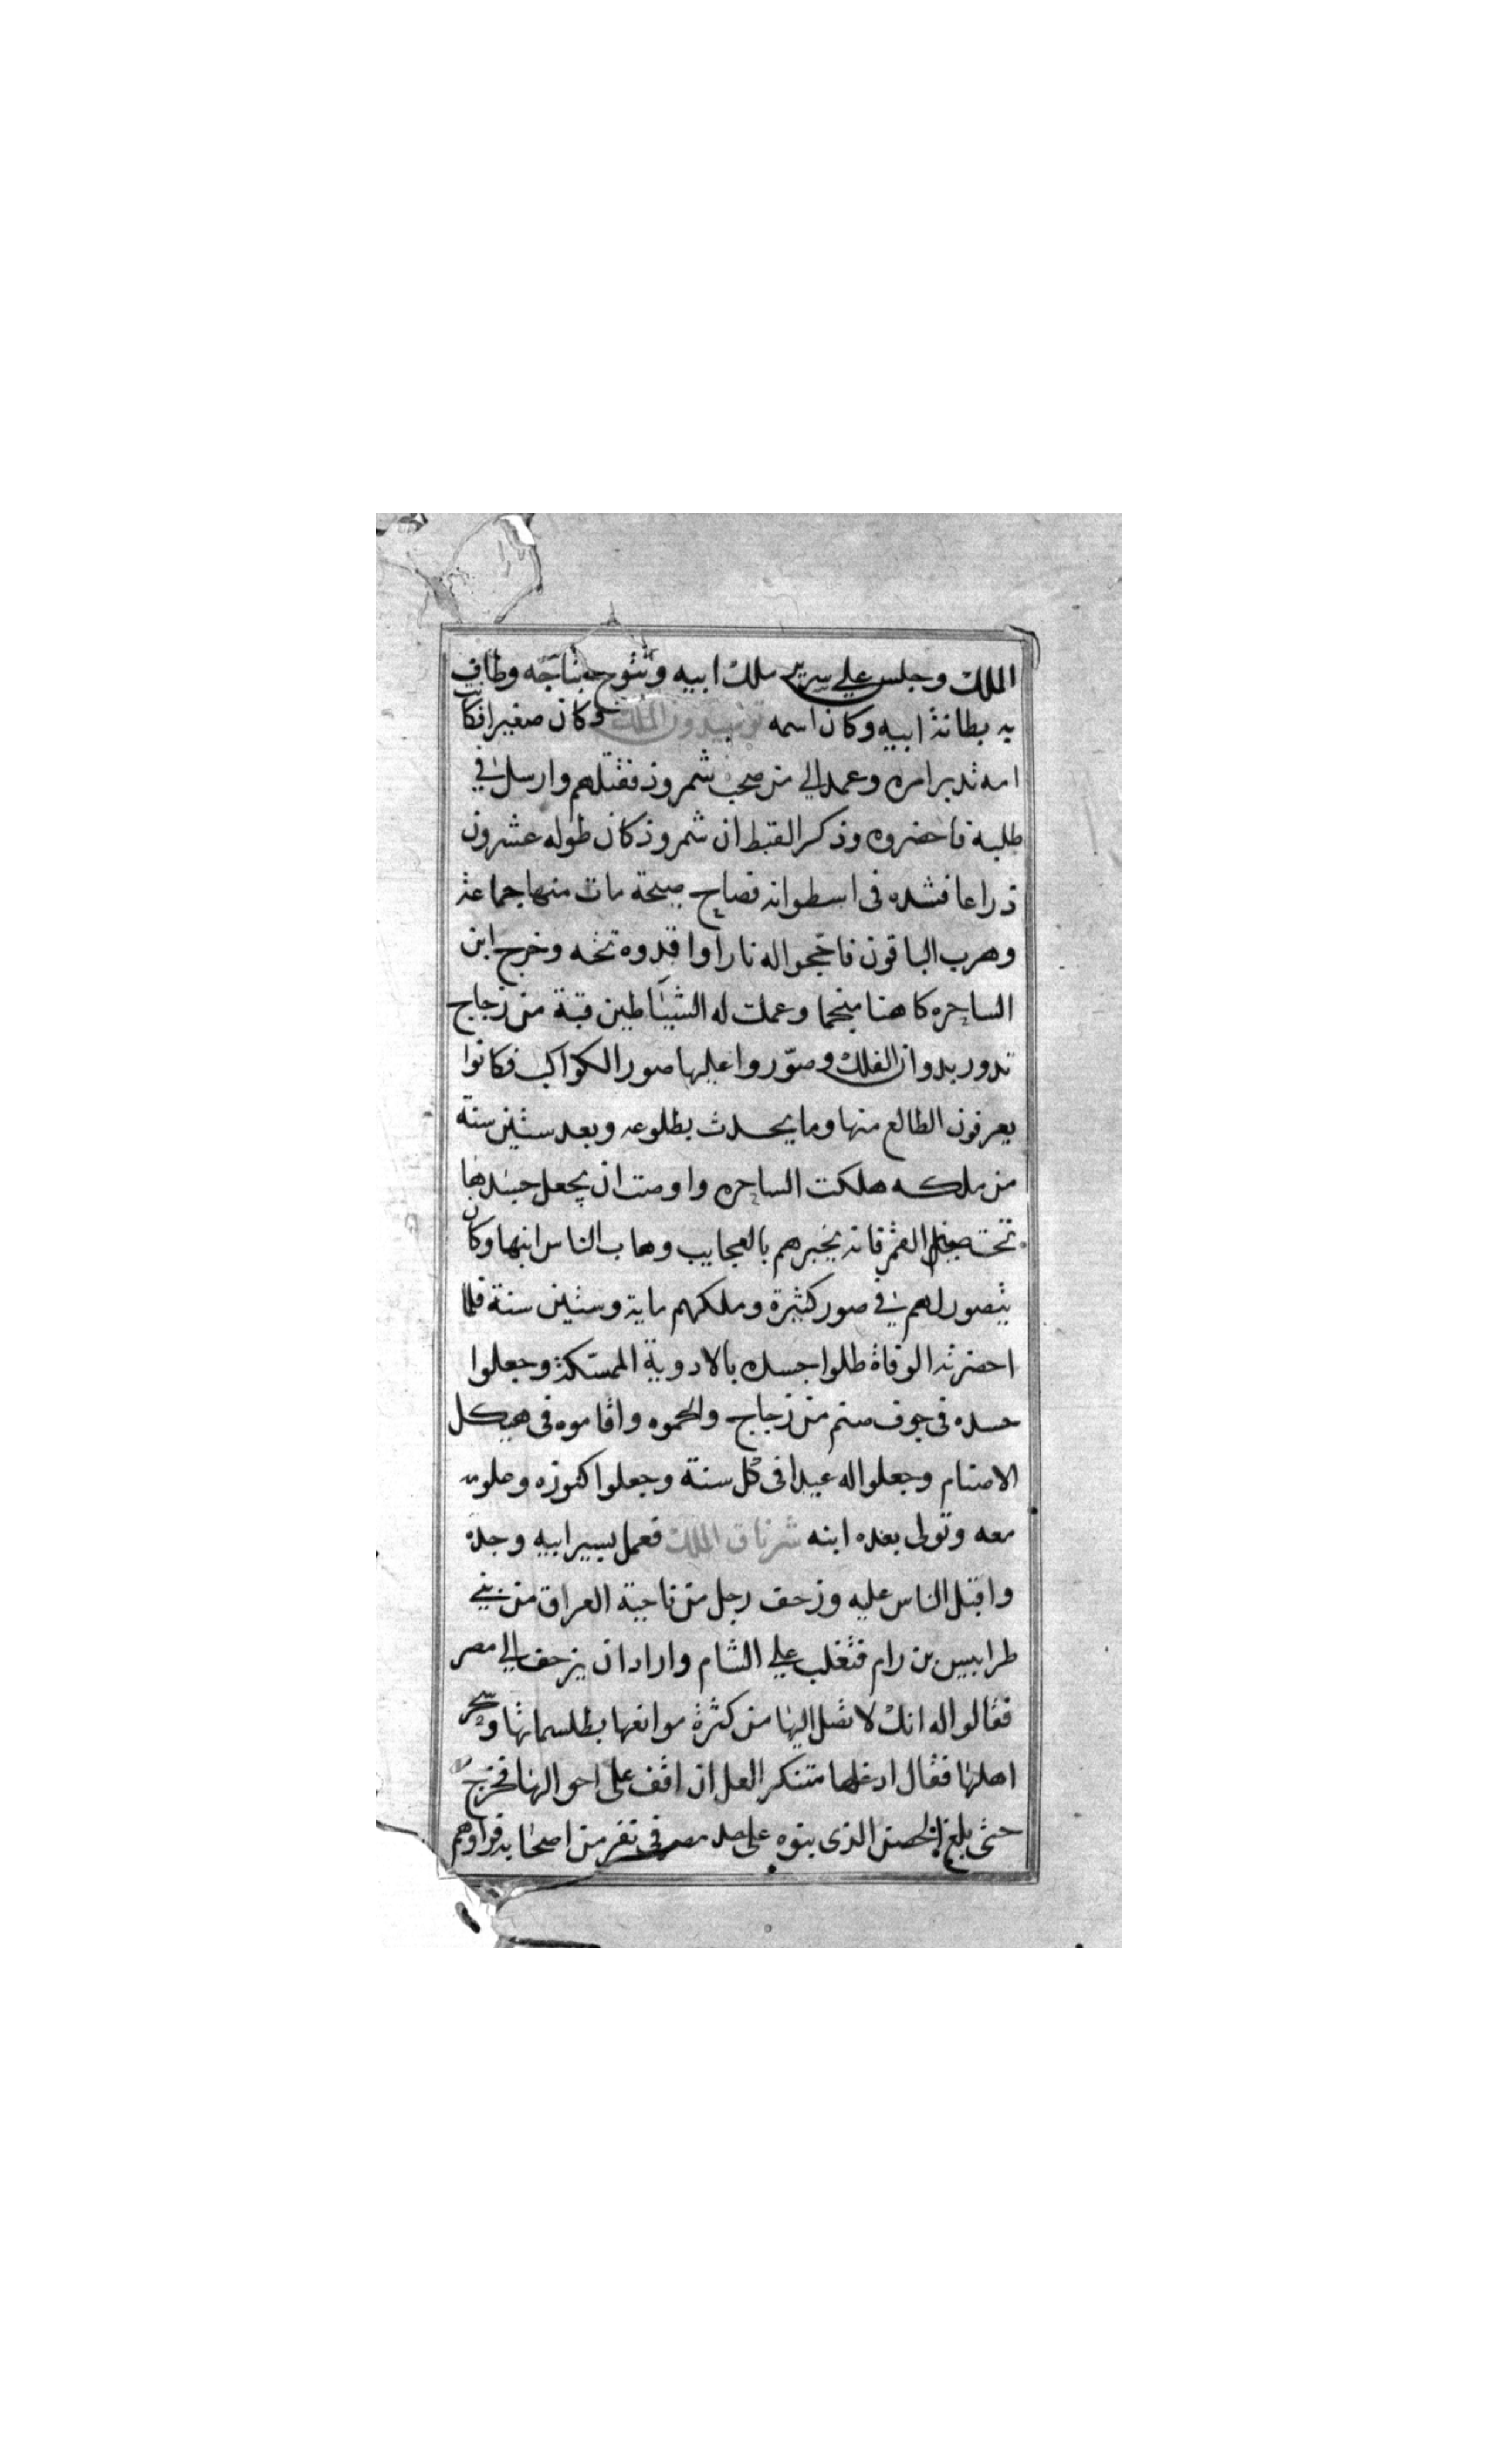 الملك وجلس علي سرير ملك ابيه وتتوج بتاجه وطاف
به بطانة ابيه وكان اسمه توسيدون الملك وكان صغيرا فكانت
امه تدبر امره وعمد الي من صحب شمرود فقتلهم وارسل في
طلبه فاحضروه وذكر القبط ان شمرود كان طوله عشرون
ذراعا فشده في اسطوانه فصاح صيحة مات منها جماعة
وهرب الباقون فاججوا له نارا واوقدوه تحته وخرج ابن
الساحره كاهنا منجما وعملت له الشياطين قبة من زجاج
تدور بدوان الفلك وصوّروا عليها صور الكواكب فكانوا
يعرفون الطالع منها وما يحدث بطلوعه وبعد ستين سنة
من ملكه هلكت الساحره واوصت ان يجعل جسدها
تحت صنم القمر فانه يخبرهم بالعجايب وهاب الناس ابنها وكان
يتصور لهم في صور كثيرة وملكهم ماية وستين سنة فلما
احضرته الوفاة طلوا جسده بالادوية الممسكة وجعلوا
جسده في جوف صنم من زجاج والحموه واقاموه في هيكل
الاصنام وجعلوا له عيدا في كل سنة وجعلوا كنوزه وعلومه
معه وتولى بعده ابنه شرناق الملك فعمل بسير ابيه وجده
واقبل الناس عليه وزحف رجل من ناحية العراق من بني
طرابيس بن رام فتغلب علي الشام واراد ان يزحف الي مصر
فقالوا له انك لا تصل اليها من كثرة موانعها بطلسماتها وسحر
اهلها فقال ادخلها متنكرا لعل ان اقف على احوالها فخرج
حتى بلغ الحصن الذى بنوه على حد مصر في نفر من اصحابه فراوهم